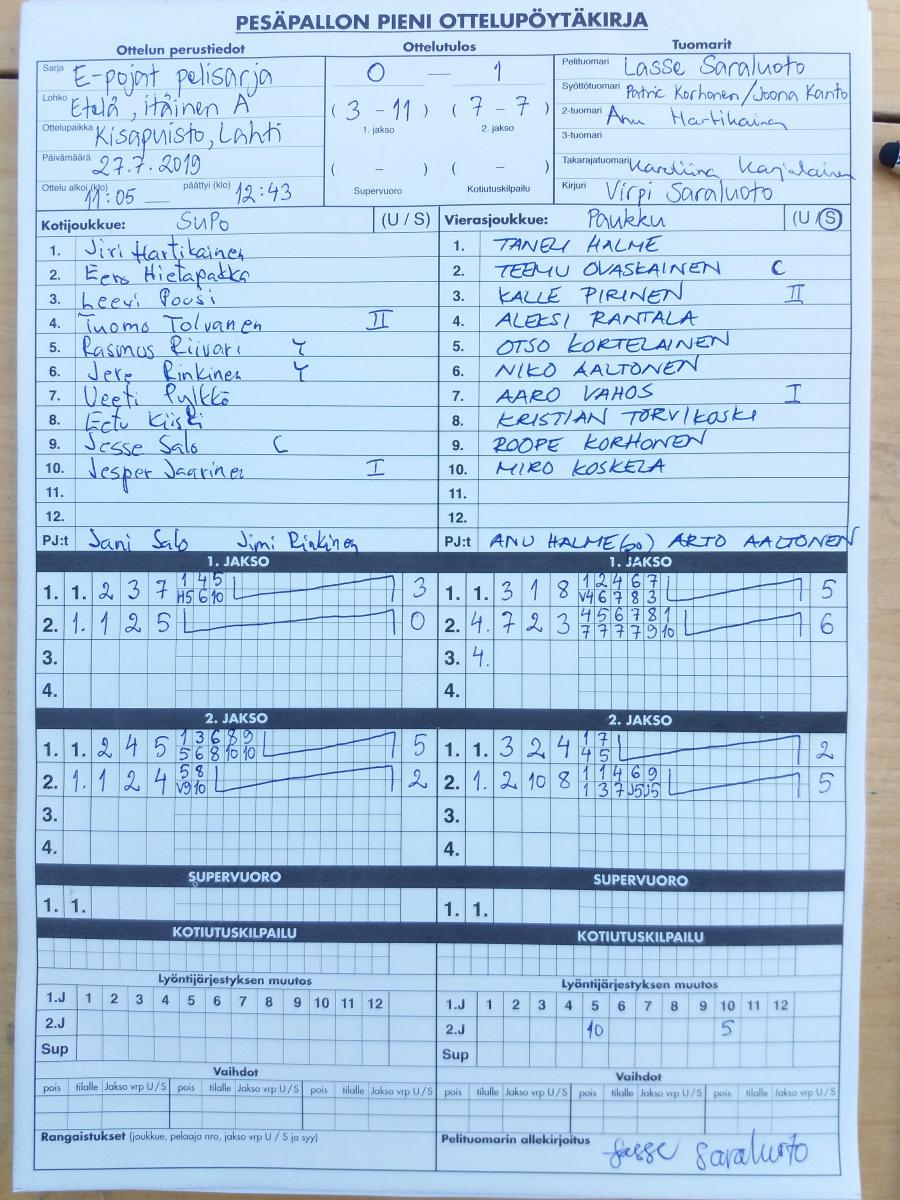 PESÄPALLON PIENI OTTELUPÖYTÄKIRJA
Ottelun perustiedot
Ottelutulos
Tuomarit
Sarja E-pojat pelisarja
Lohko Etelä, itäinen A
Ottelupaikka Kisapuisto, Lahti
Päivämäärä 27.7.2019
Ottelu alkoi (klo) 11:05 — päättyi (klo) 12:43
0 — 1
( 3 - 11 ) ( 7 - 7 )
1. jakso 2. jakso
( - ) ( - )
Supervuoro Kotiutuskilpailu
Pelituomari Lasse Saraluoto
Syöttötuomari Patric Korhonen/Joona Kanto
2-tuomari Anu Hartikainen
3-tuomari
Takarajatuomari Karoliina Karjalainen
Kirjuri Virpi Saraluoto
Kotijoukkue: SuPo (U / S)
1. Jiri Hartikainen
2. Eero Hietapakka
3. Leevi Pousi
4. Tuomo Tolvanen II
5. Rasmus Riivari Y
6. Jere Rinkinen Y
7. Veeti Pylkkö
8. Eetu Kiiski
9. Jesse Salo C
10. Jesper Jaarinen I
11.
12.
PJ:t Jani Salo Jimi Rinkinen
Vierasjoukkue: Paukku (U / S)
1. TANELI HALME
2. TEEMU OVASKAINEN C
3. KALLE PIRINEN II
4. ALEKSI RANTALA
5. OTSO KORTELAINEN
6. NIKO AALTONEN
7. AARO VAHOS I
8. KRISTIAN TORVIKOSKI
9. ROOPE KORHONEN
10. MIRO KOSKELA
11.
12.
PJ:t ANU HALME(po) ARTO AALTONEN
1. JAKSO
1 4 5
1. 1. 2 3 7 H5 6 10 3
2. 1. 1 2 5 0
3.
4.
1. JAKSO
1 2 4 6 7
1. 1. 3 1 8 V4 6 7 8 3 5
4 5 6 7 8 1
2. 4. 7 2 3 7 7 7 7 9 10 6
3. 4.
4.
2. JAKSO
1 3 6 8 9
1. 1. 2 4 5 5 6 8 10 10 5
5 8
2. 1. 1 2 4 V9 10 2
3.
4.
2. JAKSO
1 7
1. 1. 3 2 4 4 5 2
1 1 4 6 9
2. 1. 2 10 8 1 3 7 J5 J5 5
3.
4.
SUPERVUORO
1. 1.
SUPERVUORO
1. 1.
KOTIUTUSKILPAILU
KOTIUTUSKILPAILU
Lyöntijärjestyksen muutos
1.J 1 2 3 4 5 6 7 8 9 10 11 12
2.J
Sup
Lyöntijärjestyksen muutos
1.J 1 2 3 4 5 6 7 8 9 10 11 12
2.J 10 5
Sup
Vaihdot
pois tilalle Jakso vrp U / S pois tilalle Jakso vrp U / S pois tilalle Jakso vrp U / S
Vaihdot
pois tilalle Jakso vrp U / S pois tilalle Jakso vrp U / S pois tilalle Jakso vrp U / S
Rangaistukset (joukkue, pelaaja nro, jakso vrp U / S ja syy)
Pelituomarin allekirjoitus Lasse Saraluoto